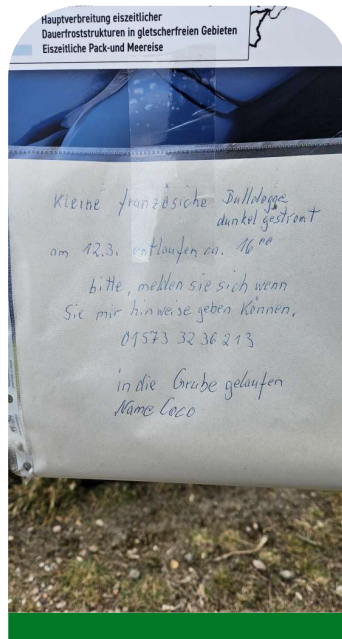 Hauptverbreitung eiszeitlicher
Dauerfroststrukturen in gletscherfreien Gebieten
Eiszeitliche Pack-und Meereise
Kleine französiche Bulldogge
dunkel gestromt
am 12.3. entlaufen ca. 16⁰⁰
bitte, melden sie sich wenn
Sie mir hinweise geben Können.
01573 32 36 213
in die Grube gelaufen
Name Coco